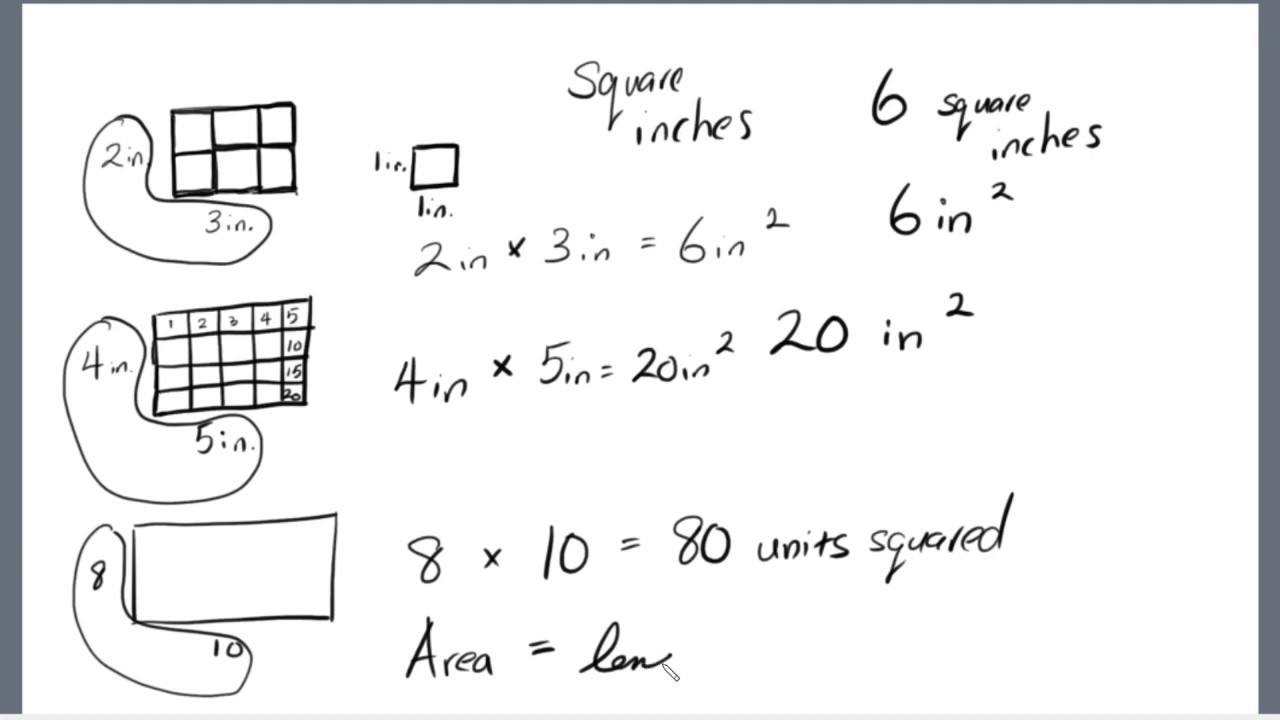 Square
inches
6 square
inches
2in
3in.
1in.
1in.
6in²
2in × 3in = 6in²
1 2 3 4 5
10
15
20
4in.
5in.
4in × 5in = 20in²
20 in²
8
10
8 × 10 = 80 units squared
Area = len